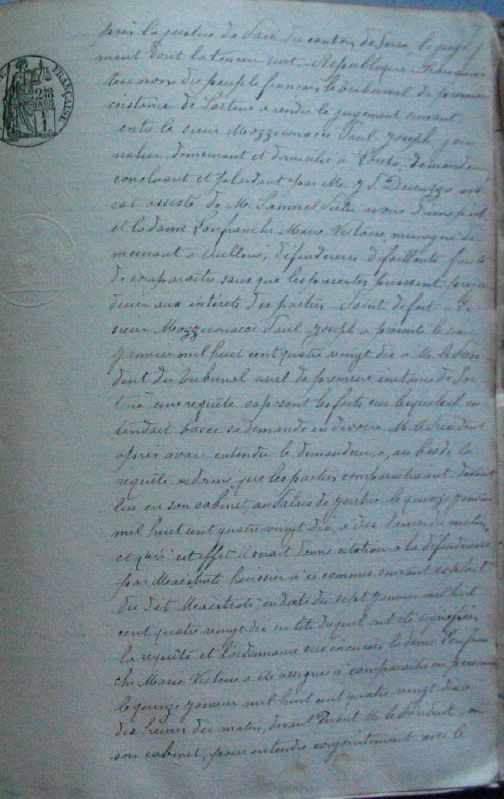 par la justice de Paix du canton de Serra le juge
ment dont la teneur suit République Française
au nom du peuple français le tribunal de première
instance de Sartène a rendu le jugement suivant
entre le sieur Mozziconacci Paul Joseph jour
nalier, demeurant et domicilié à Loreto, demandeur
concluant et plaidant par Me J. S.
cat assisté de Me Samuel Piétri avoué d'une part
et la dame Lanfranchi Marie Victoire, ménagère de
meurant à Aullène, défenderesse défaillante faute
de comparaître sans que les présentes puissent préju
dicier aux intérêts des parties Point de fait Le
sieur Mozziconacci Paul Joseph a présenté le
janvier mil huit cent quatre vingt dix à M. le Prési
dent du Tribunal civil de première instance de Sar
tène une requête exposant les faits sur lesquels il en
tendait baser sa demande en divorce M. le Président
après avoir entendu le demandeur, a, au bas de la
requête ordonné que les parties comparaîtraient devant
lui en son cabinet, au Palais de justice le quinze janvier
mil huit cent quatre vingt dix, à dix heures du matin,
et qu'à cet effet il serait donné citation à la défenderesse
par Maestrati huissier à ce commis suivant exploit
du dit Maestrati, en date du sept janvier mil huit
cent quatre vingt dix en tête duquel ont été signifiées
la requête et l'ordonnance sus énoncées la dame Lanfran
chi Marie Victoire a été assignée à comparaître en personne
le quinze janvier mil huit cent quatre vingt dix à
dix heures du matin, devant M. le Président, en
son cabinet, pour entendre conjointement avec le